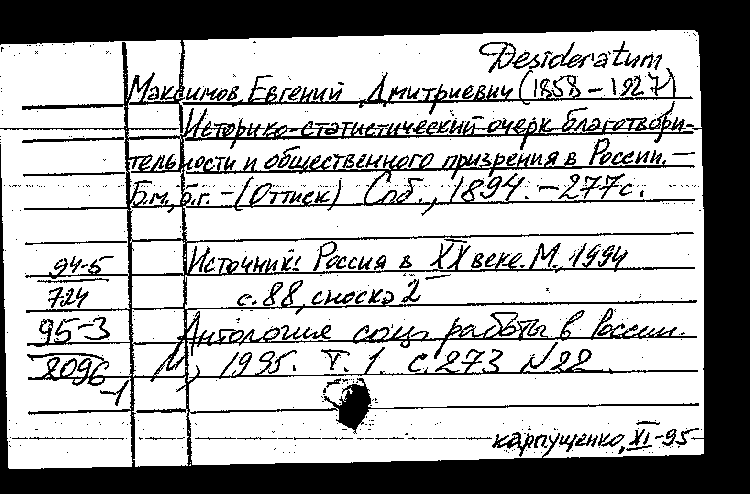 Desideratum
Максимов, Евгений Дмитриевич (1858-1927)
Историко-статистический очерк благотвори-
тельности и общественного призрения в России.-
Б.м., б.г. - (Оттиск) Спб., 1894. - 277с.
94-5 Источник: Россия в XX веке. М., 1994
724 с. 88, сноска 2
95-3 Антология соц. работы в России.
2096 М., 1995. Т. 1. с. 273 №22.
-1
Карпущенко, XI-95